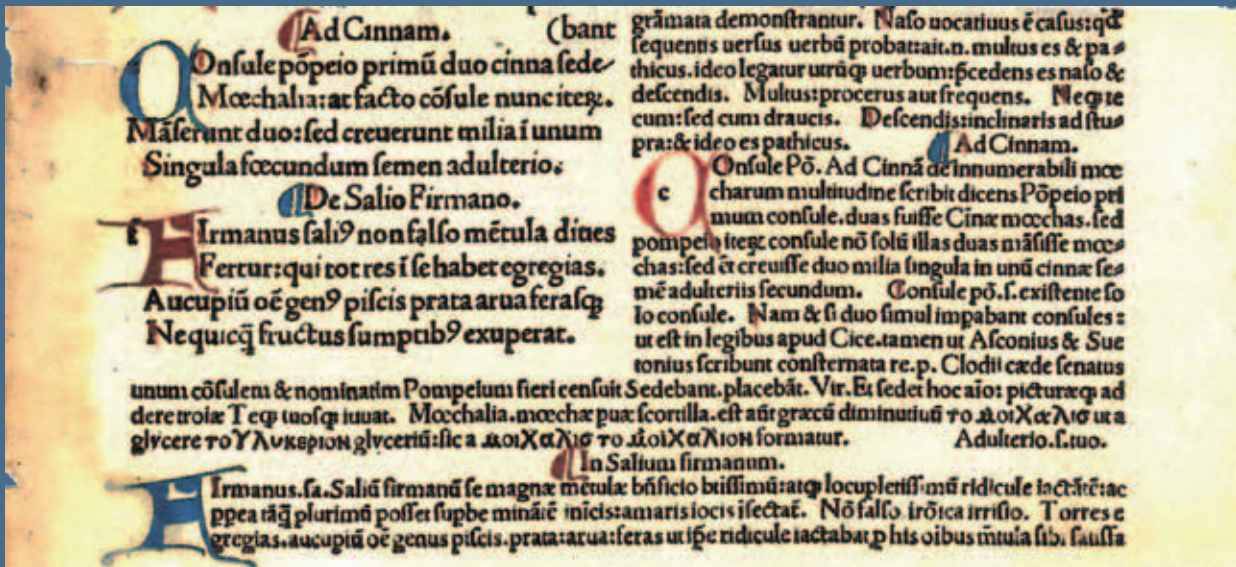 Ad Cinnam. (bant
Onſule põpeio primũ duo cinna ſede
Mœchalia: at facto cõſule nunc iteꝝ.
Mãſerunt duo: ſed creuerunt milia ĩ unum
Singula fœcundum ſemen adulterio.
De Salio Firmano.
f Irmanus ſaliꝰ non falſo mẽtula diues
Fertur: qui tot res ĩ ſe habet egregias.
Aucupiũ oẽ genꝰ piſcis prata arua feraſqꝫ
Nequicq̃ fructus ſumptibꝰ exuperat.
grãmata demonſtrantur. Naſo uocatiuus ẽ caſus: qđ
ſequentis uerſus uerbũ probat: ait.n. multus es & pa
thicus. ideo legatur utrũqꝫ uerbum: p̃cedens es naſo &
deſcendis. Multus: procerus aut frequens. Neqꝫ te
cum: ſed cum draucis. Deſcendis: inclinaris ad ſtu
pra: & ideo es pathicus. Ad Cinnam.
Onſule Põ. Ad Cinnã de innumerabili mœ
c charum multitudine ſcribit dicens Põpeio pri
mum conſule. duas fuiſſe Cinæ mœchas. ſed
pompeio iteꝝ conſule nõ ſolũ illas duas mãſiſſe mœ
chas: ſed & creuiſſe duo milia ſingula in unũ cinnæ ſe
mẽ adulteriis fecundum. Conſule põ. ſ. exiſtente ſo
lo conſule. Nam & ſi duo ſimul impabant conſules:
ut eſt in legibus apud Cice. tamen ut Aſconius & Sue
tonius ſcribunt conſternata re.p. Clodii cæde ſenatus
unum cõſulem & nominatim Pompeium fieri cenſuit Sedebant. placebãt. Vir. Et ſedet hoc aĩo: picturæqꝫ ad
dere troiæ Teqꝫ tuoſqꝫ iuuat. Mœchalia. mœchæ puæ ſcortilla. eſt aũt græcũ diminutiuũ το μοιχαλισ ut a
glycere το γλυκεριον glyceriũ: ſic a μοιχαλισ το μοιχαλιον formatur. Adulterio. ſ. tuo.
In Salium firmanum.
Irmanus. ſa. Saliũ firmanũ ſe magnæ mẽtulæ bñficio btiſſimũ: atqꝫ locupletiſſimũ ridicule iactãtẽ: ac
plurimũ poſſet ſupbe amaris iocis iſectat̃. Nõ falſo. irõica irriſio. Tot res e
gregias. aucupiũ oẽ genus piſcis. prata: arua: feras ut ip̃e ridicule iactabat p his oibus mẽtula ſib.